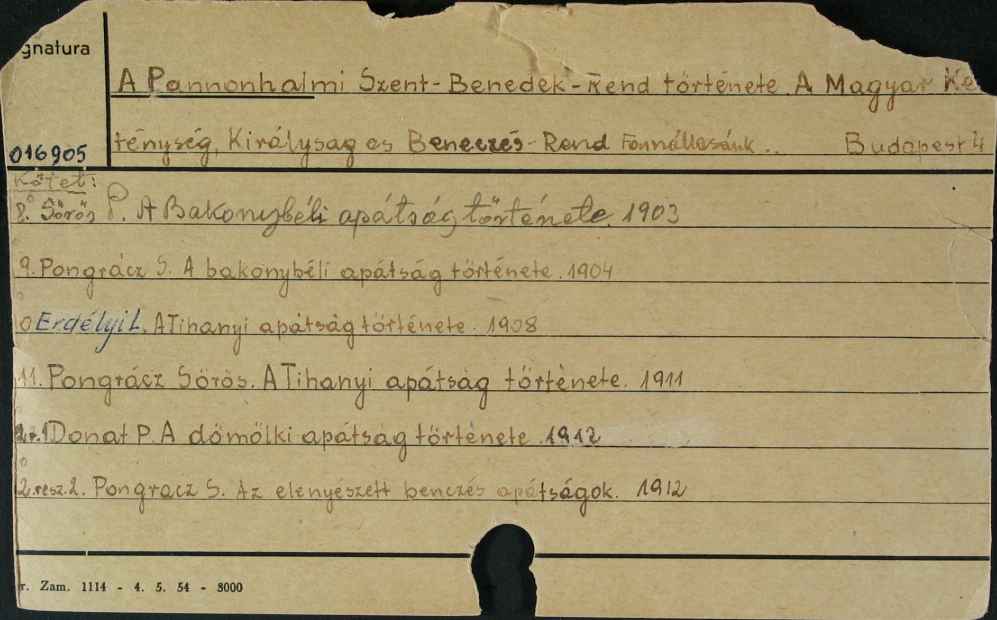 gnatura
A Pannonhalmi Szent-Benedek-Rend története. A Magyar Ke
016905 ténység, Királyság és Benczés-Rend Fönnállásánk .. Budapest
Kötet:
8. Sörös P. A Bakonybéli apátság története. 1903
9. Pongrácz S. A bakonybéli apátság története. 1904
0 Erdélyi L. A Tihanyi apátság története. 1908
11. Pongrácz Sörös. A Tihanyi apátság története. 1911
Donat P. A dömölki apátság története. 1912
2. resz. 2. Pongracz S. Az elenyészett benczés apátságok. 1912
r. Zam. 1114 - 4. 5. 54 - 3000